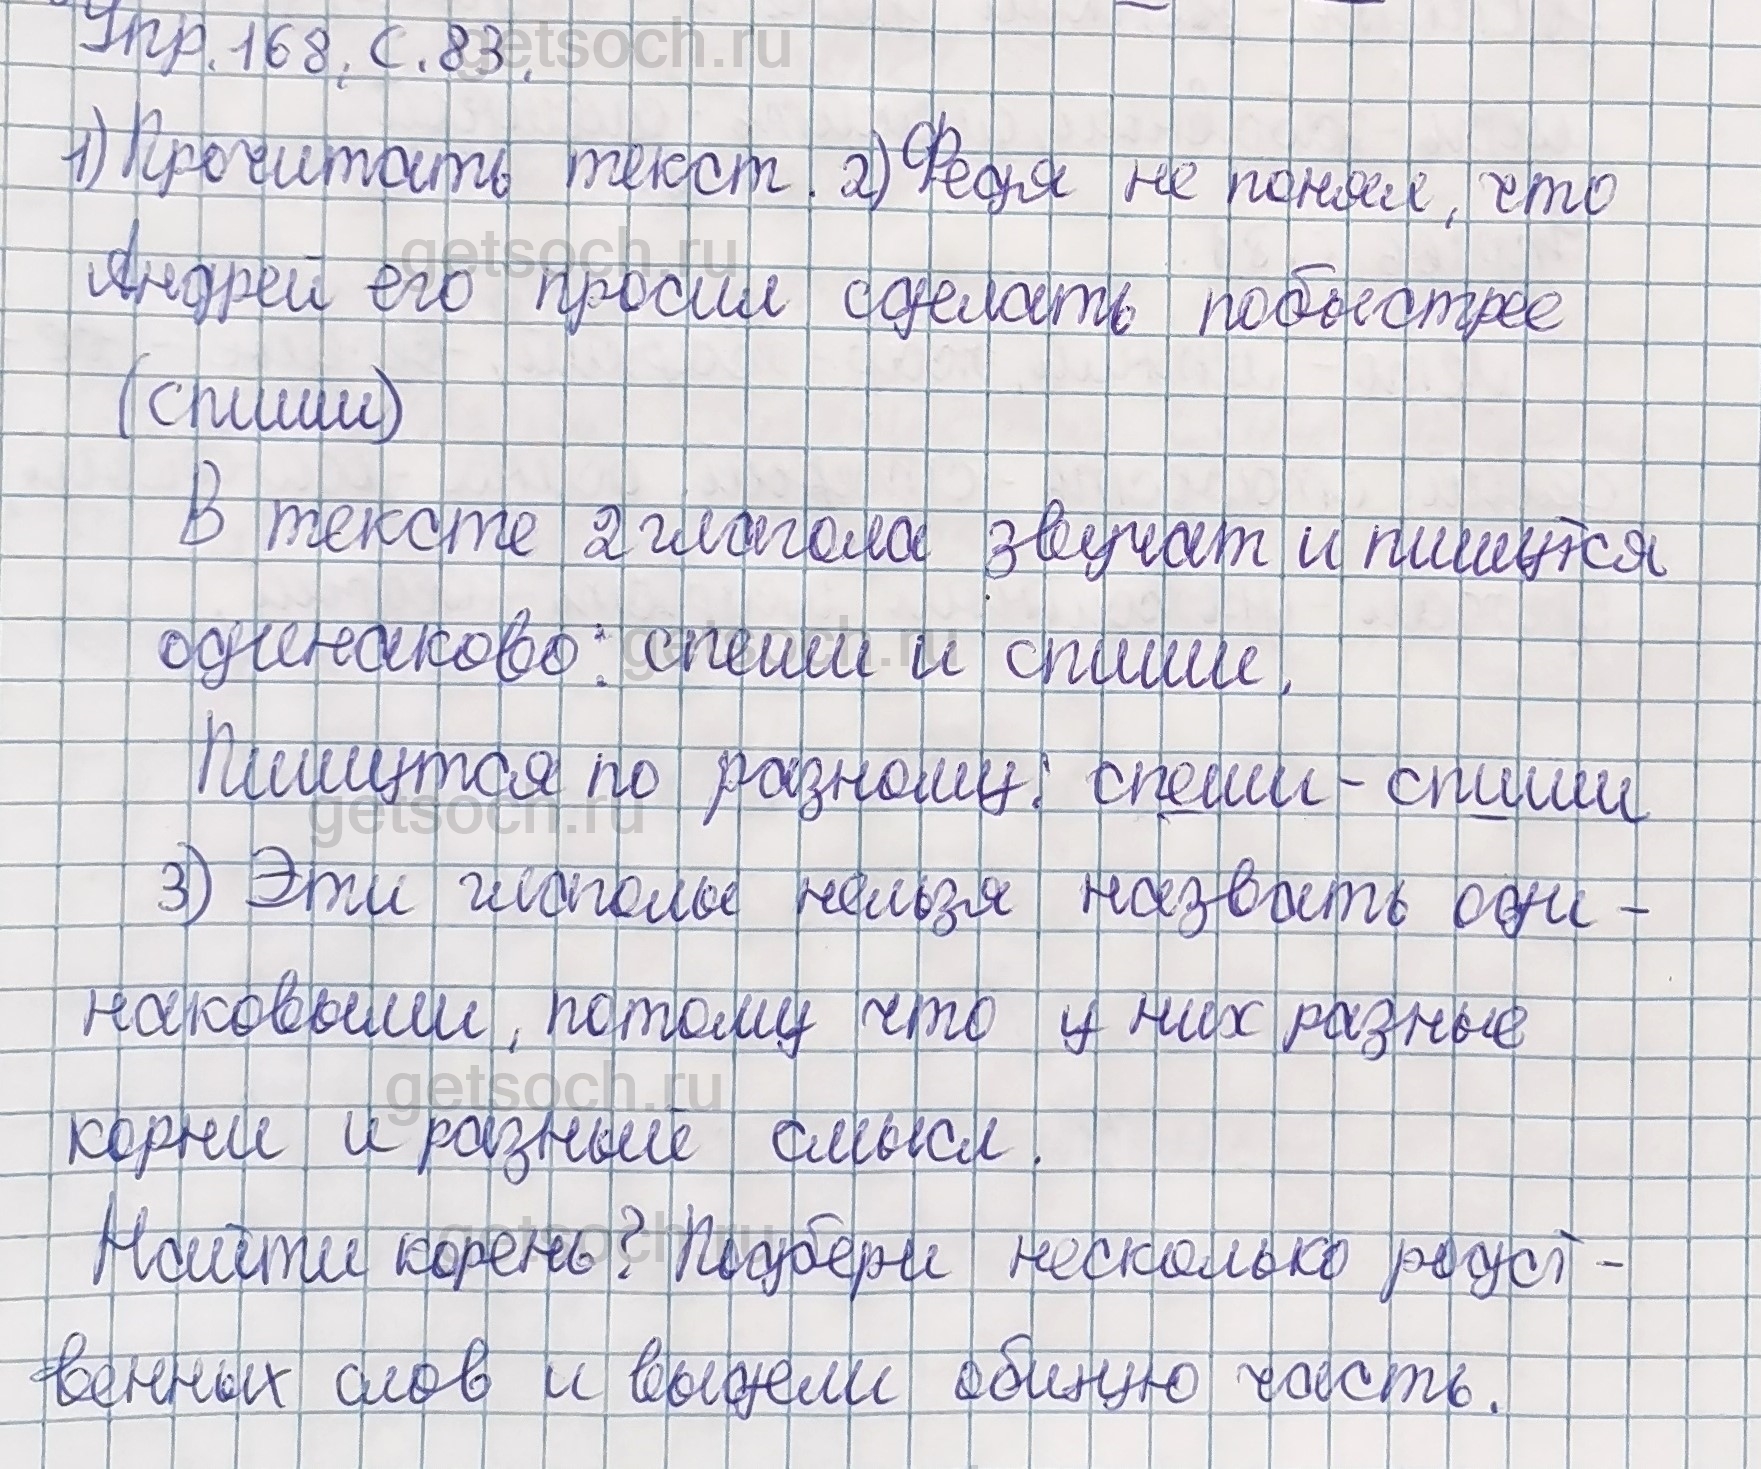 Упр. 168, с. 83.
1) Прочитать текст. 2) Федя не понял, что
Андрей его просил сделать побыстрее
(спиши)
В тексте 2 глагола звучат и пишутся
одинаково: спеши и спиши.
Пишутся по разному: спеши - спиши
3) Эти глаголы нельзя назвать оди-
наковыми, потому что у них разные
корни и разный смысл.
Найти корень? Подбери несколько родст-
венных слов и выдели общую часть.
getsoch.ru
getsoch.ru
getsoch.ru
getsoch.ru
getsoch.ru
getsoch.ru